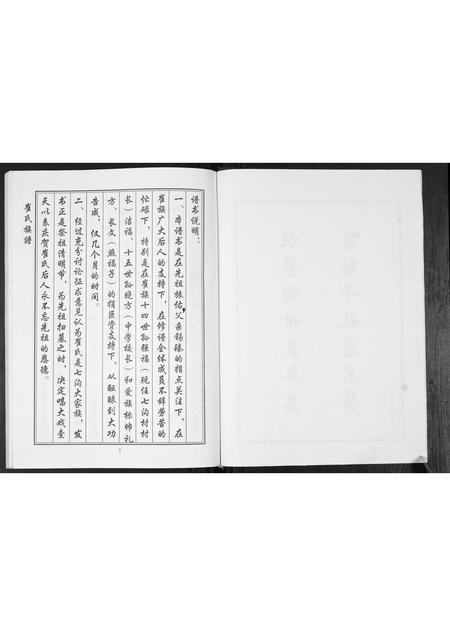 谱书说明：
一、本谱书是在先祖振佑父亲锡臻的指点关注下，在
崔族广大后人的支持下，在修谱全体成员不辞劳苦的
忙碌下，特别是在崔族十四世孙强福（现任七沟村村
长）洁福、十五世孙晓方（中学校长）和爱族标帅礼
方、长文（盛福子）的捐巨资支持下，从酝酿到大功
告成，仅几个月的时间。
二、经过充分讨论征求意见认为崔氏是七沟大家族，发
书正是祭祖清明节，为先祖扫墓之时，决定唱大戏壹
天以表庆贺崔氏后人永不忘先祖的恩德。
崔氏族譜
1